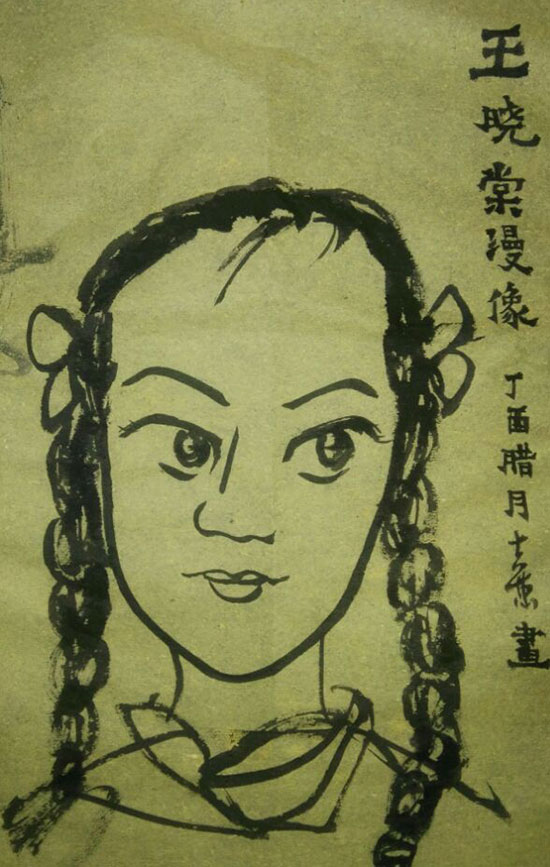 王晓棠漫像
丁酉腊月士蕉畫